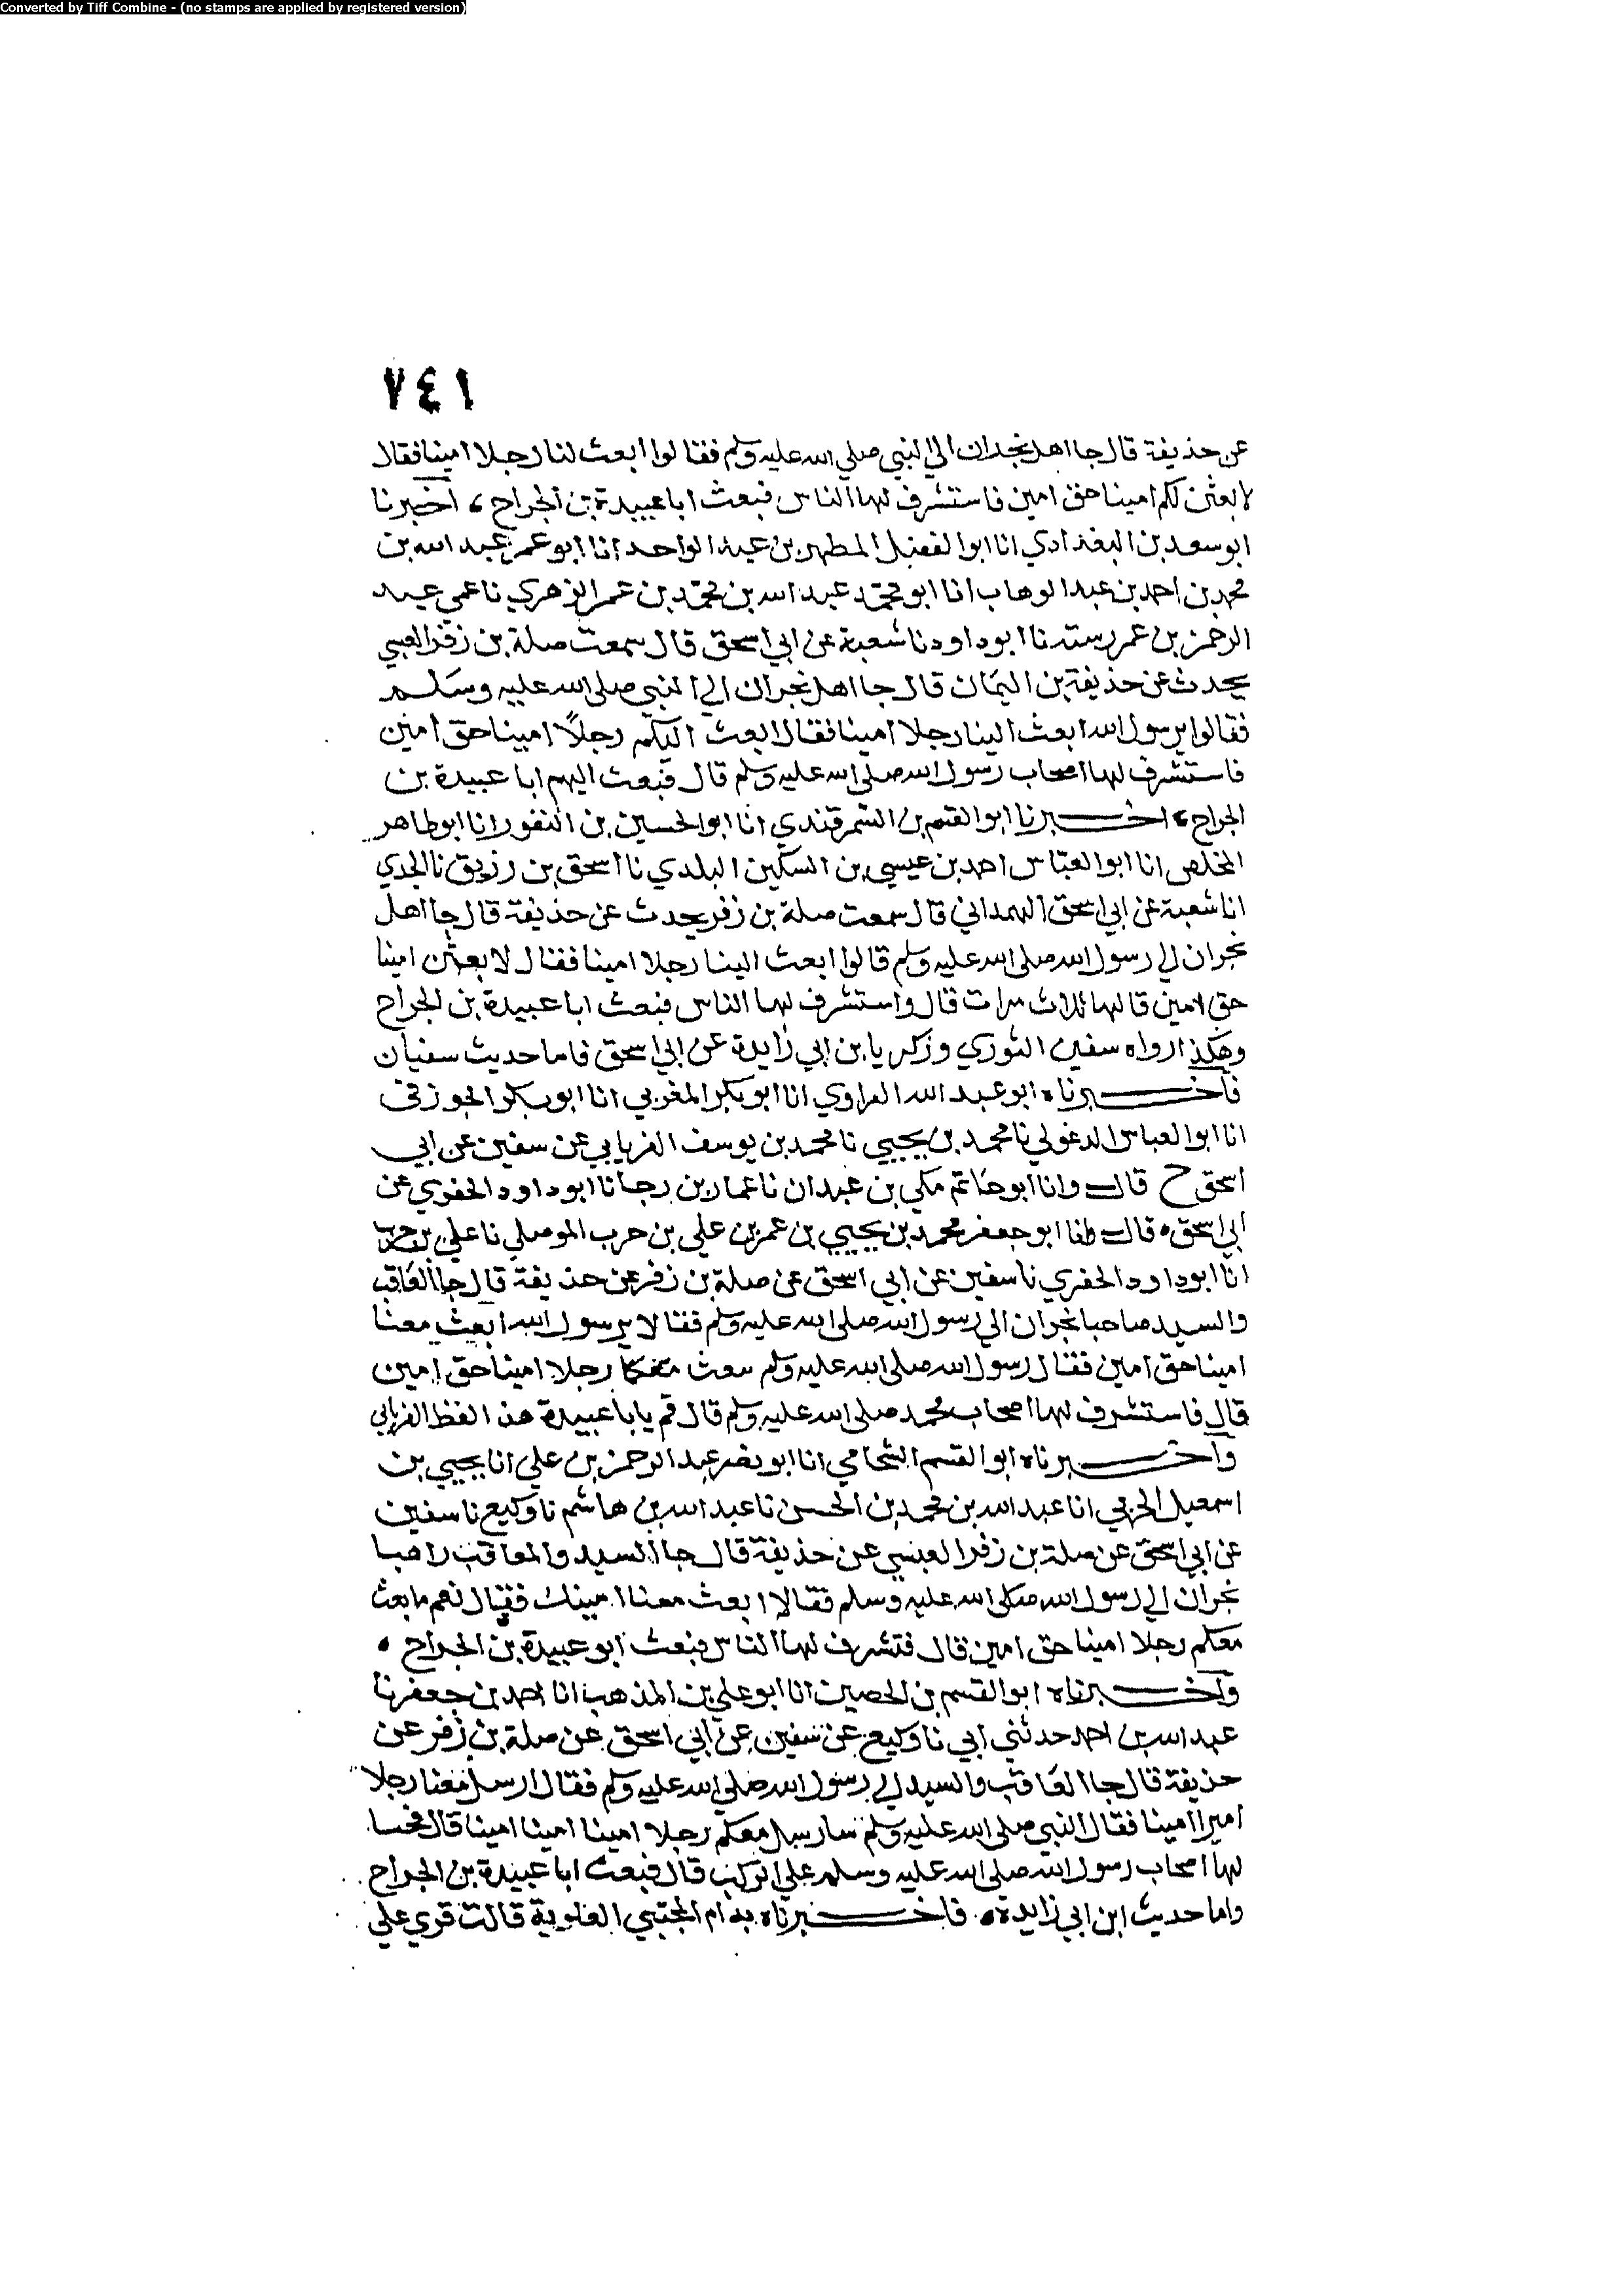 Converted by Tiff Combine - (no stamps are applied by registered version)
٧٤١
عن حذيفة قال جا اهل نجران الى النبي صلى الله عليه وسلم فقالوا ابعث لنا رجلا امينا فقال
لابعثن لكم امينا حق امين فاستشرف لها الناس فبعث ابا عبيدة بن الجراح ، اخبرنا
ابو سعد بن البغدادي انا ابو الفضل المطهر بن عبد الواحد انا ابو عمر عبد الله بن
محمد بن احمد بن عبد الوهاب انا ابو محمد عبد الله بن محمد بن عمر الزهري نا عمي عبد
الرحمن بن عمر رسته نا ابو داود نا شعبة عن ابي اسحق قال سمعت صلة بن زفر العبسي
يحدث عن حذيفة بن اليمان قال جا اهل نجران الى النبي صلى الله عليه وسلم
فقالوا يرسول الله ابعث الينا رجلا امينا فقال لابعث اليكم رجلاً امينا حق امين
فاستشرف لها اصحاب رسول الله صلى الله عليه وسلم قال فبعث اليهم ابا عبيدة بن
الجراح ، اخبرنا ابو القسم بن السمرقندي انا ابو الحسين بن النقور انا ابو طاهر
المخلص انا ابو العباس احمد بن عيسى بن السكين البلدي نا اسحق بن رزيق نا الجدي
انا شعبة عن ابي اسحق الهمداني قال سمعت صلة بن زفر يحدث عن حذيفة قال جا اهل
نجران الى رسول الله صلى الله عليه وسلم قالوا ابعث الينا رجلا امينا فقال لابعثن امينا
حق امين قالها ثلاث مرات قال واستشرف لها الناس فبعث ابا عبيدة بن الجراح
وهكذا رواه سفين الثوري وزكريا بن ابي زايدة عن ابي اسحق فاما حديث سفيان
فاخبرناه ابو عبد الله الفراوي انا ابو بكر المغربي انا ابو بكر الجوزقي
انا ابو العباس الدغولي نا محمد بن يحيي نا محمد بن يوسف الفريابي عن سفين عن ابي
اسحق ح قال وانا ابو حاتم مكي بن عبدان نا عمار بن رجا نا ابو داود الحفري عن
ابي اسحق ه قال ابو جعفر محمد بن يحيي بن عمر بن علي بن حرب الموصلي نا علي بن حرب
انا ابو داود الحفري نا سفين عن ابي اسحق عن صلة بن زفر عن حذيفة قال جا العاقب
والسيد صاحبا نجران الى رسول الله صلى الله عليه وسلم فقالا يرسول الله ابعث معنا
امينا حق امين فقال رسول الله صلى الله عليه وسلم سعث معكا رجلا امينا حق امين
قال فاستشرف لها اصحاب محمد صلى الله عليه وسلم قال قم يابا عبيدة هذا لفظ الفريابي
واخبرناه ابو القسم الشحامي انا ابو نصر عبد الرحمن بن علي انا يحيي بن
اسمعيل الحربي انا عبد الله بن محمد بن الحسن نا عبد الله بن هاشم نا وكيع نا سفين
عن ابي اسحق عن صلة بن زفر العبسي عن حذيفة قال جا السيد والعاقب راهبا
نجران الى رسول الله صلى الله عليه وسلم فقالا ابعث معنا امينك فقال نعم سابعث
معكم رجلا امينا حق امين قال فتشرف لها الناس فبعث ابو عبيدة بن الجراح ه
واخبرناه ابو القسم بن الحصين انا ابو علي بن المذهب انا احمد بن جعفر نا
عبد الله بن احمد حدثني ابي نا وكيع عن سفين عن ابي اسحق عن صلة بن زفر عن
حذيفة قال جا العاقب والسيد الى رسول الله صلى الله عليه وسلم فقال ارسل معنا رجلا
اميرا امينا فقال النبي صلى الله عليه وسلم سارسل معكم رجلا امينا امينا امينا قال فجثا
لها اصحاب رسول الله صلى الله عليه وسلم على الركب قال فبعث ابا عبيدة بن الجراح
واما حديث ابن ابي زايدة ه فاخبرناه به ام المجتبي العلوية قالت قري علي